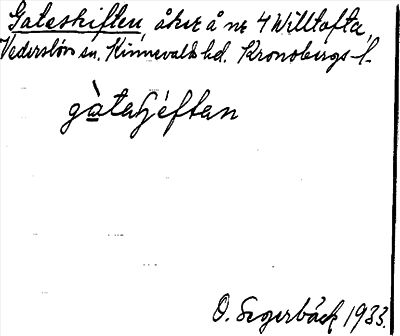 Gateskiften, åker å nr 4 Willtofta,
Vederslöv sn. Kinnevalds hd. Kronobergs l.
gàtaʃéftan
O. Segerbäck 1933.